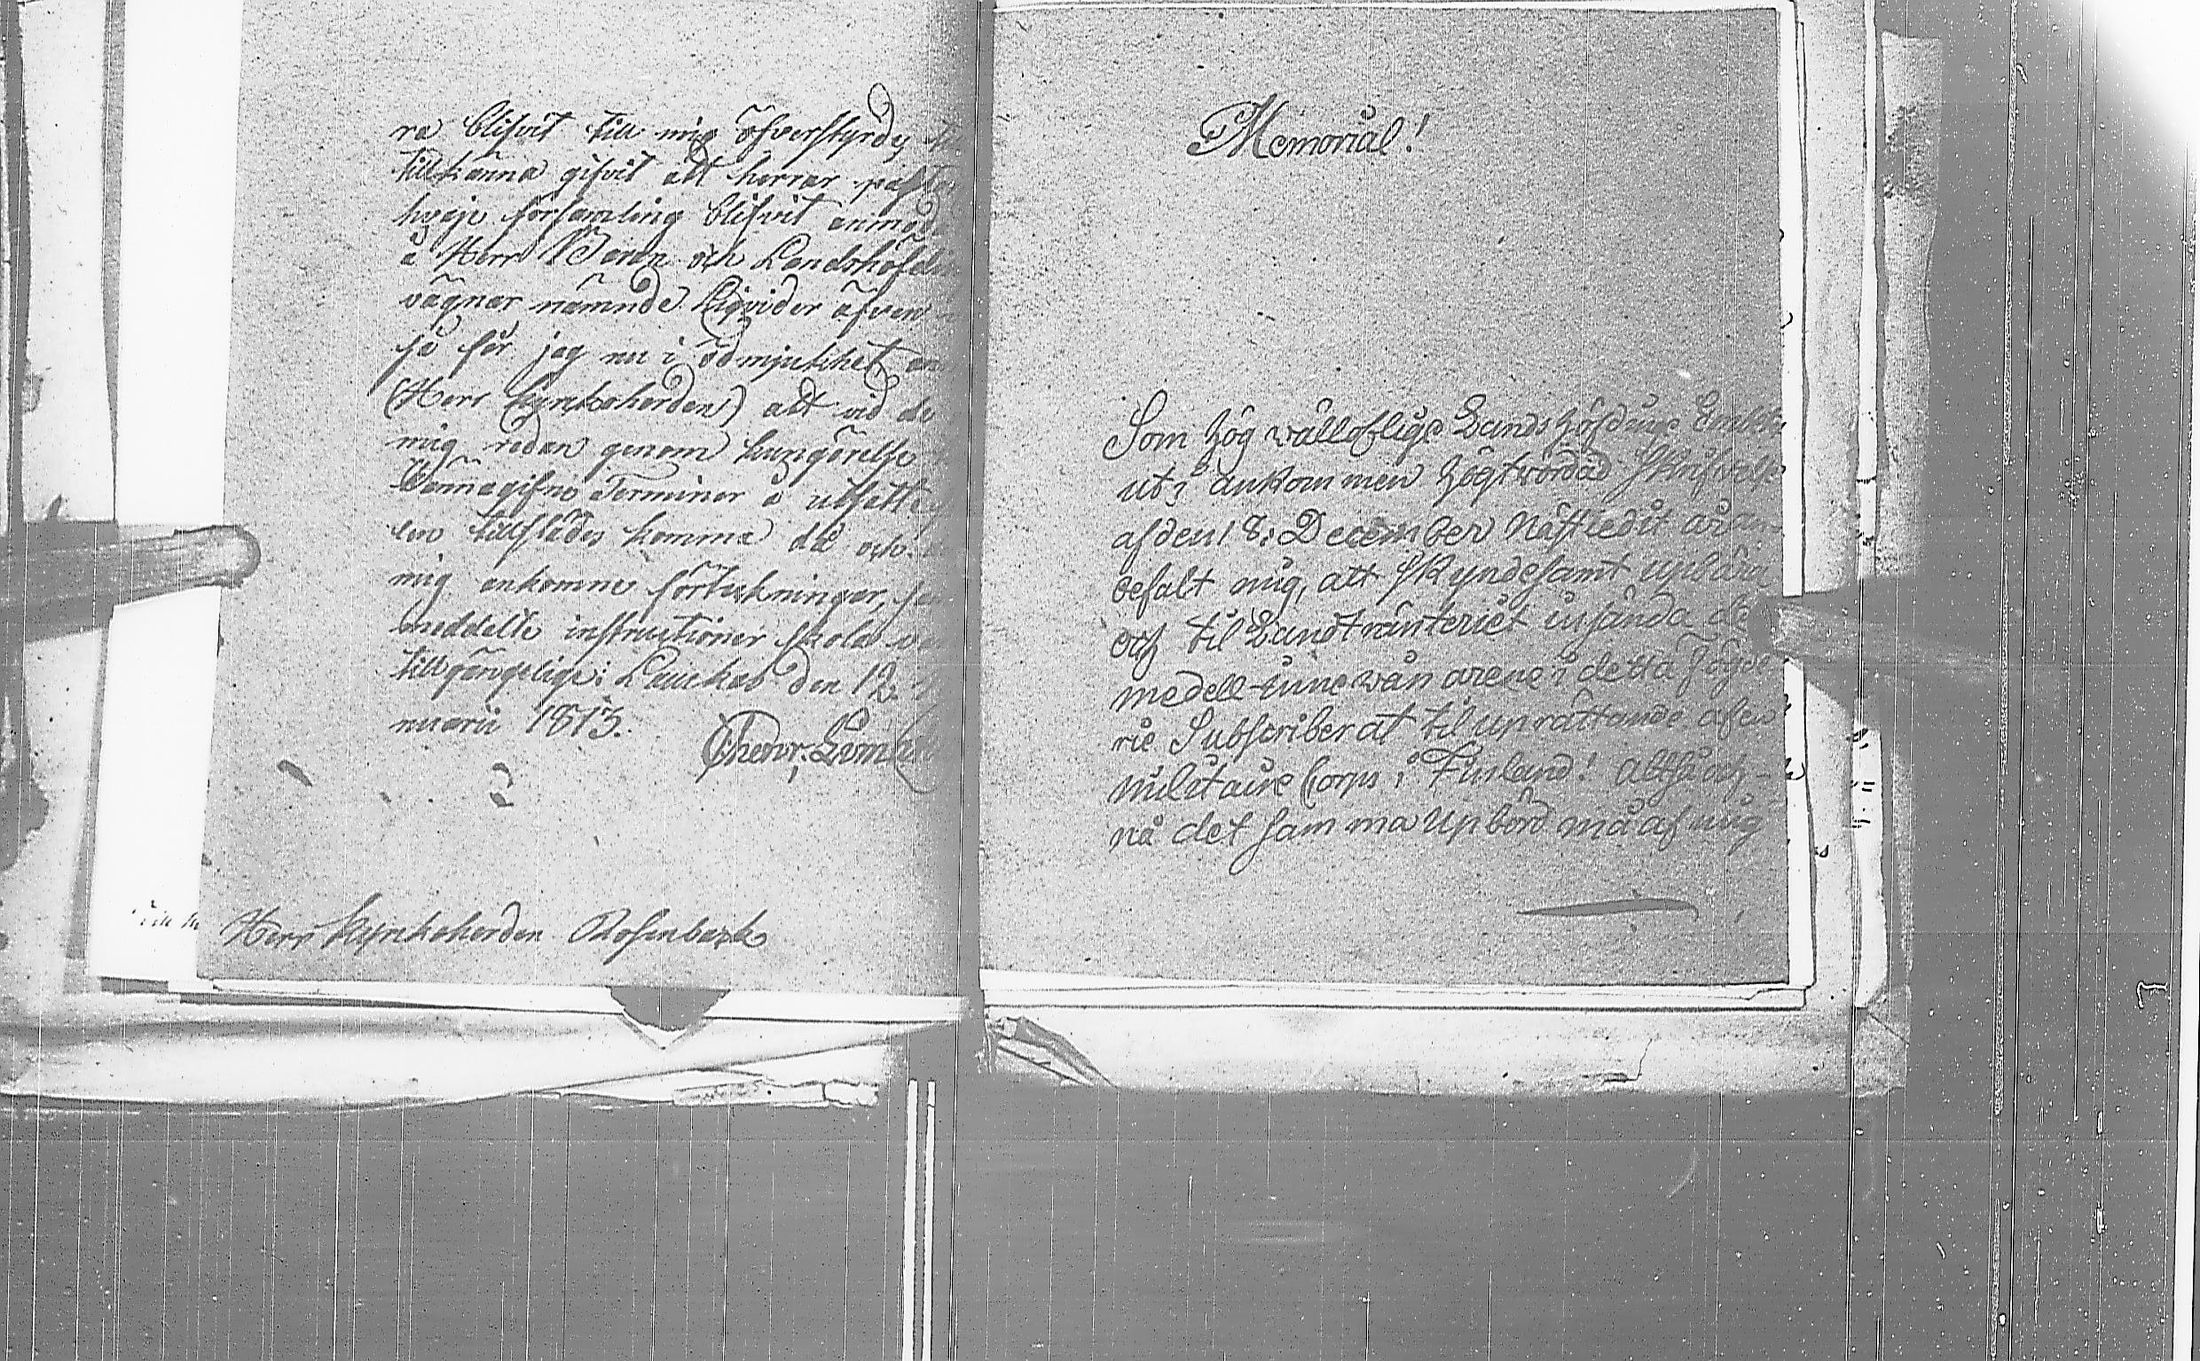 ra blifvit till mig öfverstyrde
tillkänna gifvit att herrar
hvarje församling blifvit
å Herr Baron och Landshöfdin
vägnar nämnde Liqvider äfven
så får jag nu i ödmjukhet
(Herr Kyrkoherden) att vid de
mig redan genom kungörelse
Terminer å utsatte
tillstädes komma då och
mig ankomne förteckningar,
meddelte instructioner skola
tillgängelige; Laukas den 12
nuarii 1813.
Herr Kyrkoherden Rosenback
Memorial!
Som Högwällofliga Lands Höfdinge Embte
uti ankommen Högtwördad Skrifwelse
af den 18: December näst ledit år
befalt mig, att skyndesamt upbära
och til Landtränteriet insända de
medell innewånarene i detta Fögde
rie Subscriberat til uprättande af en
militaire Corps i Finland! altså och
på det samma Upbörd må af mig